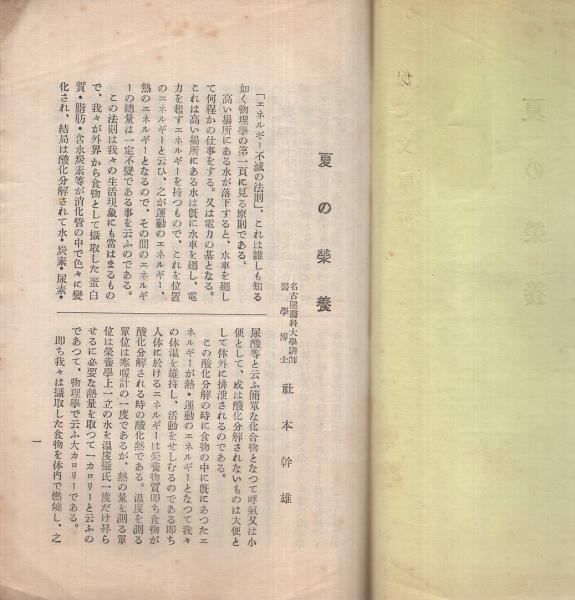 夏の榮養
名古屋醫科大學講師
醫學博士
社本幹雄
「エネルギー不滅の法則」、これは誰しも知る
如く物理學の第一頁に見る原則である。
高い場所にある水が落下すると、水車を廻し
て何程かの仕事をする。又は電力の基となる。
これは高い場所にある水は旣に水車を廻し、電
力を起すエネルギーを持つもので、これを位置
のエネルギーと云ひ、之が運動のエネルギー、
熱のエネルギーとなるので、その間のエネルギ
ーの總量は一定不變である事を云ふのである。
この法則は我々の生活現象にも當はまるもの
で、我々が外界から食物として攝取した蛋白
質・脂肪・含水炭素等が消化管の中で色々に變
化され、結局は酸化分解されて水・炭素・尿素・
尿酸等と云ふ簡單な化合物となつて呼氣又は小
便として、或は酸化分解されないものは大便と
して体外に排泄されるのである。
この酸化分解の時に食物の中に旣にあつたエ
ネルギーが熱・運動のエネルギーとなつて我々
の体温を維持し、活動をせしむるのである卽ち
人体に於けるエネルギーは榮養物質卽ち食物が
酸化分解される時の酸化熱である。温度を測る
單位は寒暖計の一度であるが、熱の量を測る單
位は榮養學上一立の水を温度攝氏一度だけ昇ら
せるに必要な熱量を取つて一カロリーと云ふの
であつて、物理學で云ふ大カロリーである。
卽ち我々は攝取した食物を体内で燃燒し、之
一